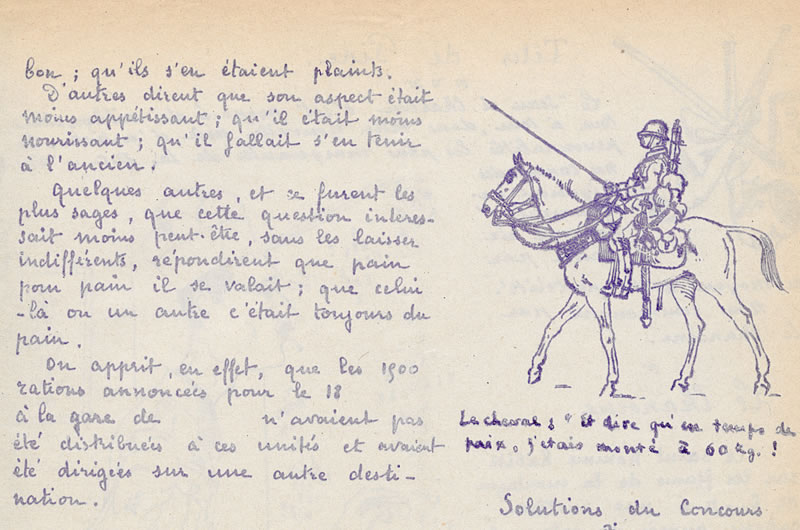 bon ; qu'ils s'en étaient plaints.
D'autres dirent que son aspect était
moins appétissant ; qu'il était moins
nourrissant ; qu'il fallait s'en tenir
à l'ancien.
Quelques autres, et ce furent les
plus sages, que cette question interes-
sait moins peut-être, sans les laisser
indifférents, répondirent que pain
pour pain il se valait ; que celui
-là ou un autre c'était toujours du
pain.
On apprit, en effet, que les 1500
rations annoncées pour le 18
à la gare de n'avaient pas
été distribuées à ces unités et avaient
été dirigées sur une autre desti-
nation.
Le cheval : "Et dire qu'en temps de
paix, j'étais monté à 60 kg. !
Solutions du Concours